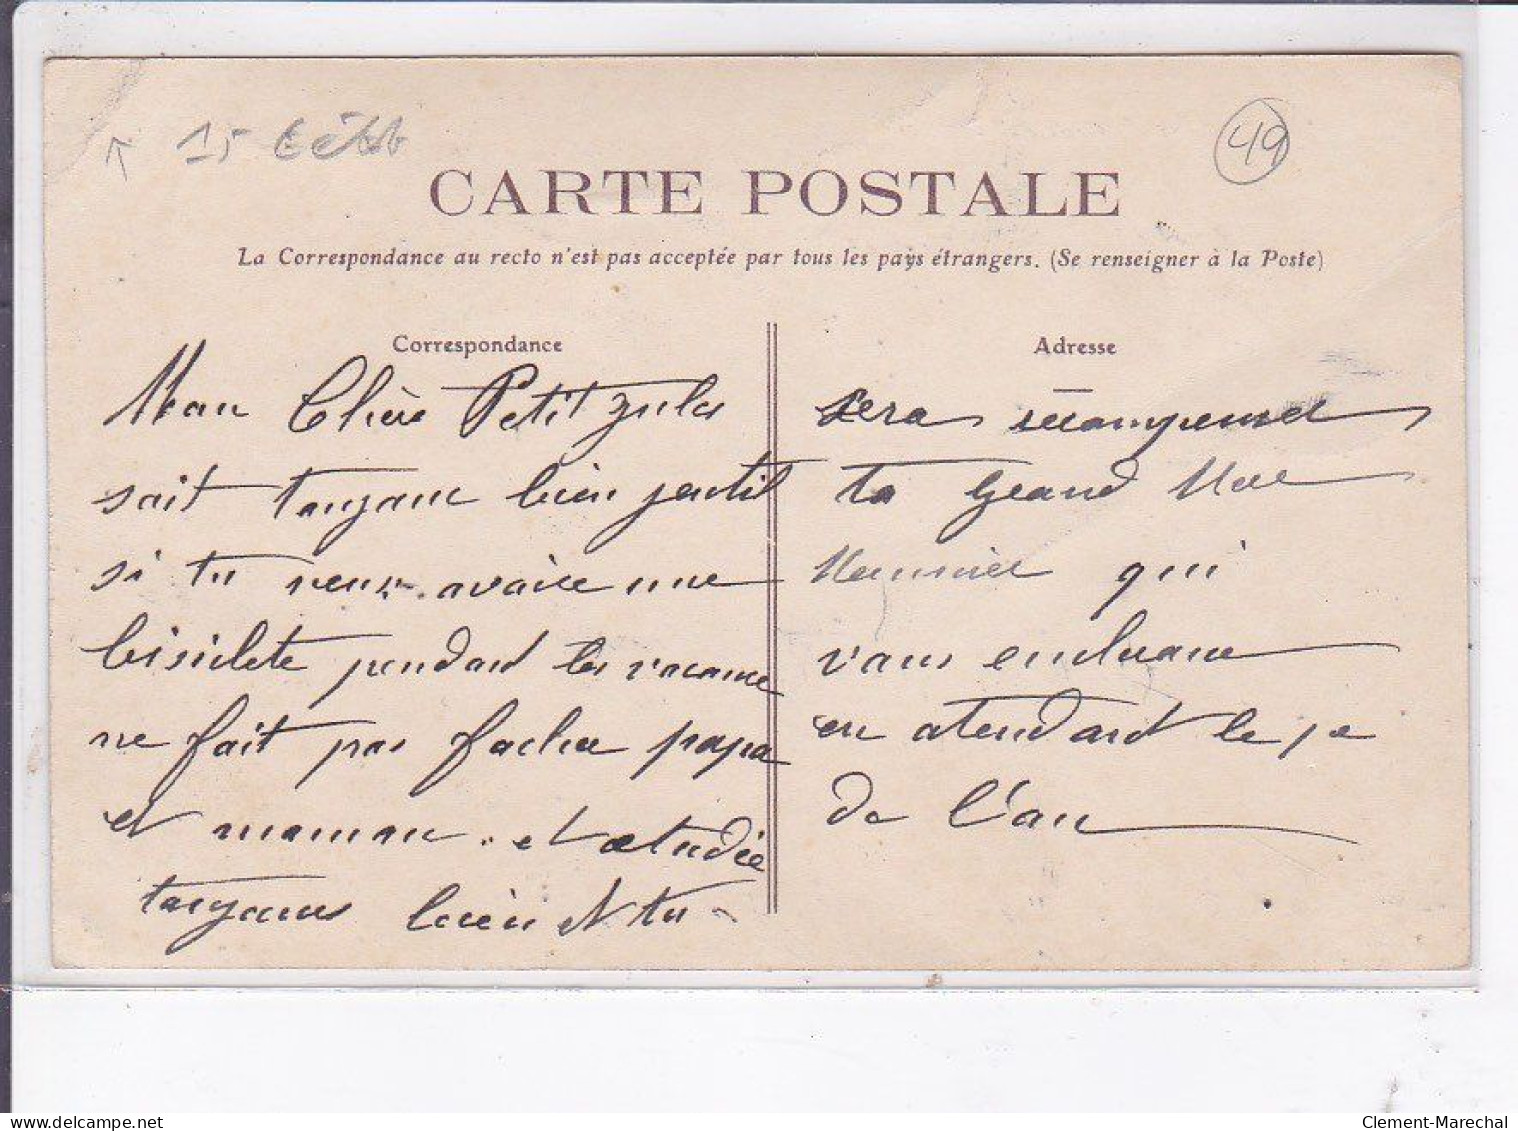 49
CARTE POSTALE
La Correspondance au recto n'est pas acceptée par tous les pays étrangers. (Se renseigner à la Poste)
Correspondance
Mon Chère Petit Jules
soit toujour bien jentil
si tu veux avoire une
bisiclete pendant les vacance
ne fait pas facher papa
et maman et étudie
toujours bien et tu
Adresse
sera récompenser
ta Grand Mere
Meunier qui
vous embrasse
en atendant le je
de l'an
Clement-Marechal